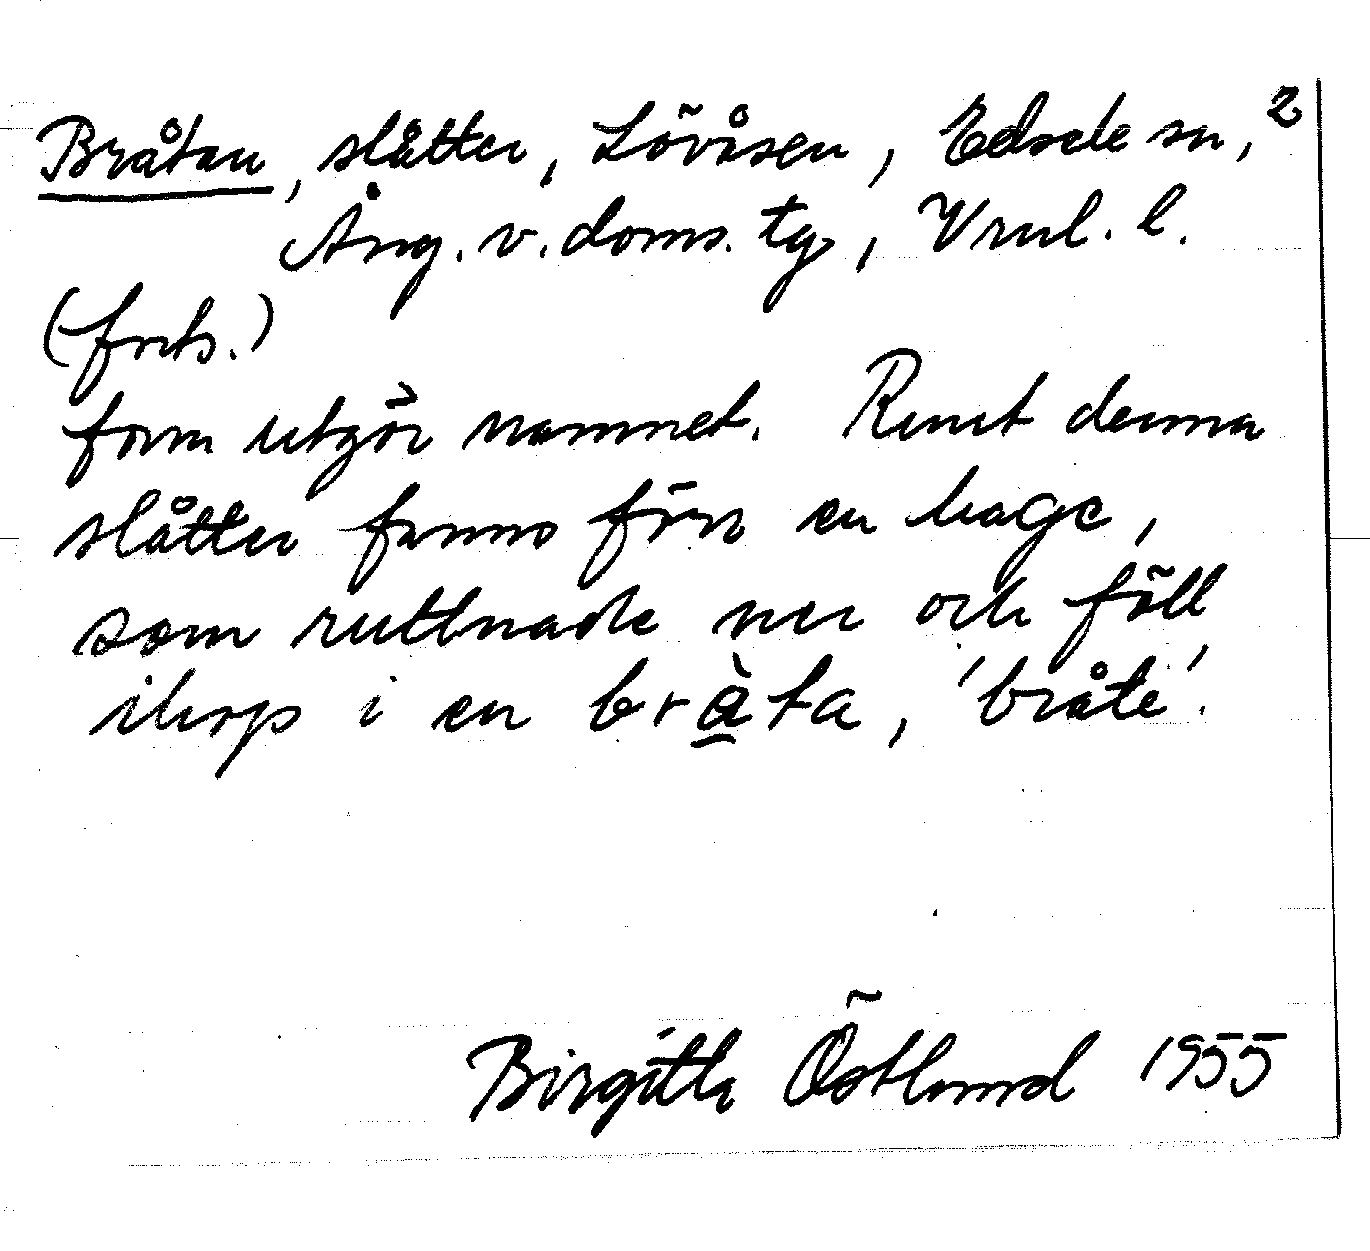 Bråtan, slåtter, Lövåsen, Edsele sn, 2
Ång. v. doms. tg, Vrnl. l.
(forts.)
form utgör namnet. Runt denna
slåtter fanns förr en hage,
som ruttnade ner och föll
ihop i en bràta, 'bråte'.
Birgitta Östlund 1955